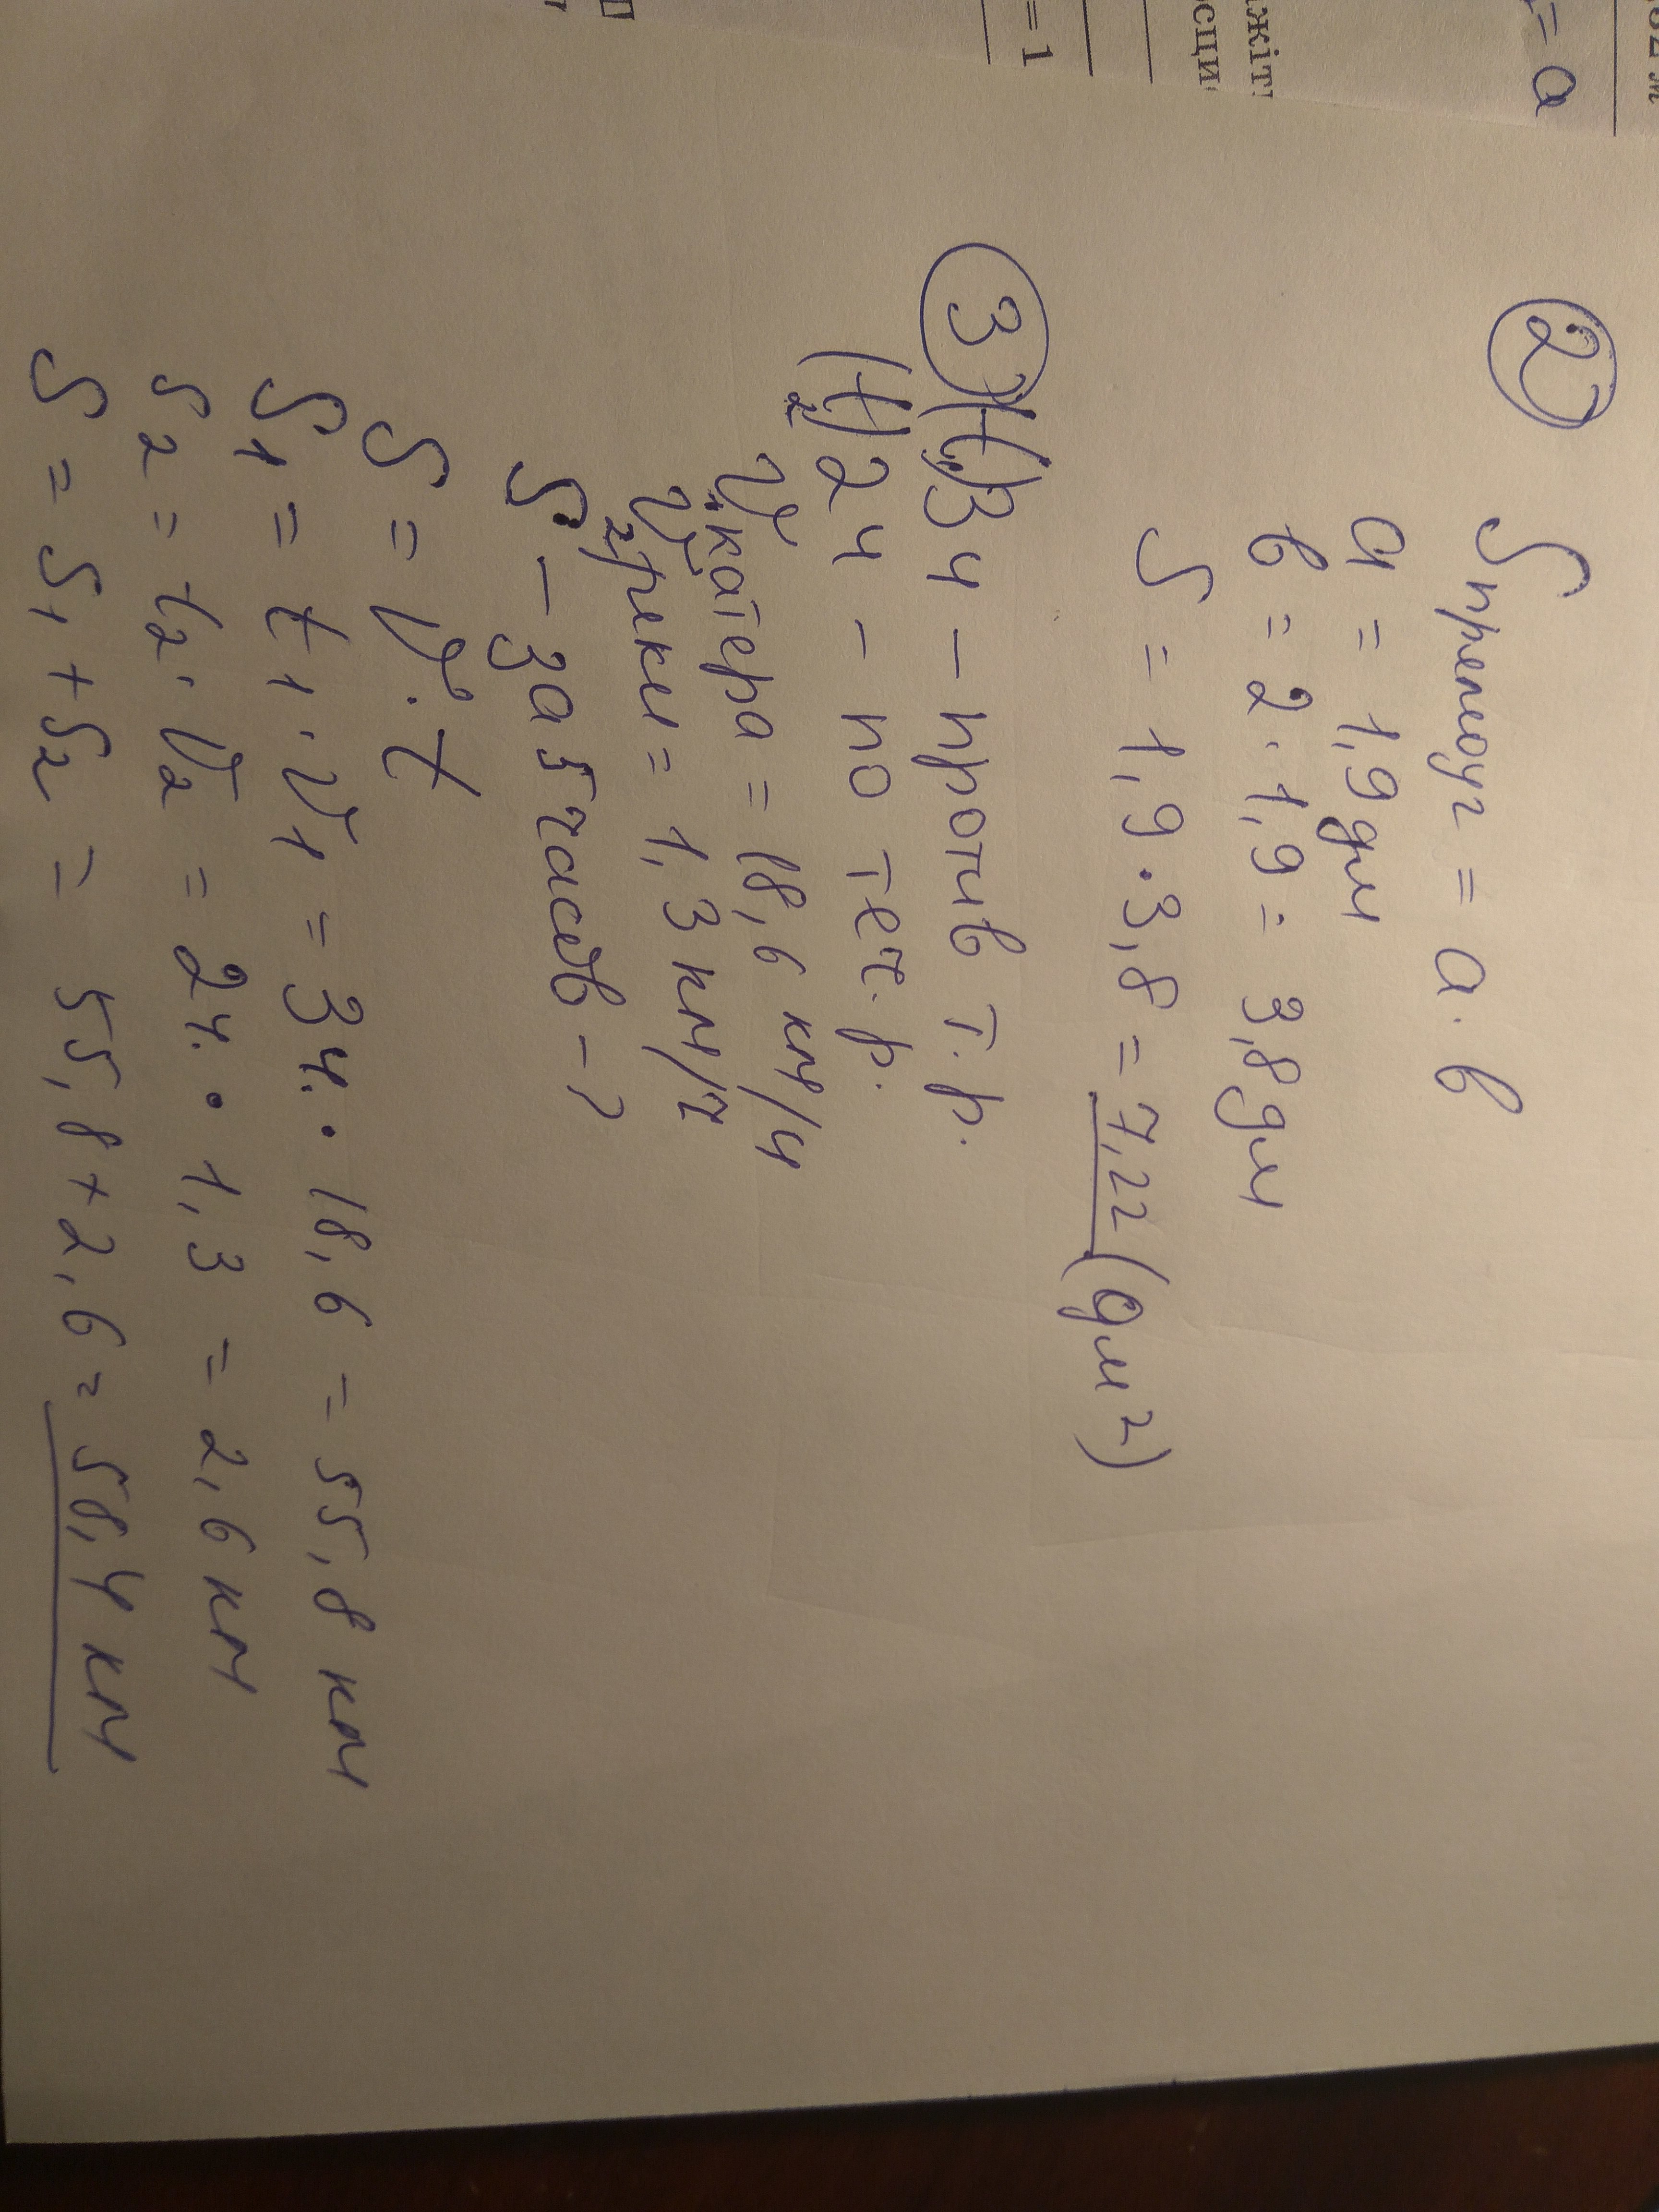 = a
ажіть
осци
= 1
2
Sпрямоуг = a · b
a = 1,9 дм
b = 2 · 1,9 = 3,8 дм
S = 1,9 · 3,8 = 7,22 (дм²)
3 (t₁) 3ч – против т. р.
(t₂) 2ч – по теч. р.
V₁ катера = 18,6 км/ч
V₂ реки = 1,3 км/ч
S – за 5 часов – ?
S = V · t
S₁ = t₁ · V₁ = 3ч. · 18,6 = 55,8 км
S₂ = t₂ · V₂ = 2ч. · 1,3 = 2,6 км
S = S₁ + S₂ = 55,8 + 2,6 = 58,4 км